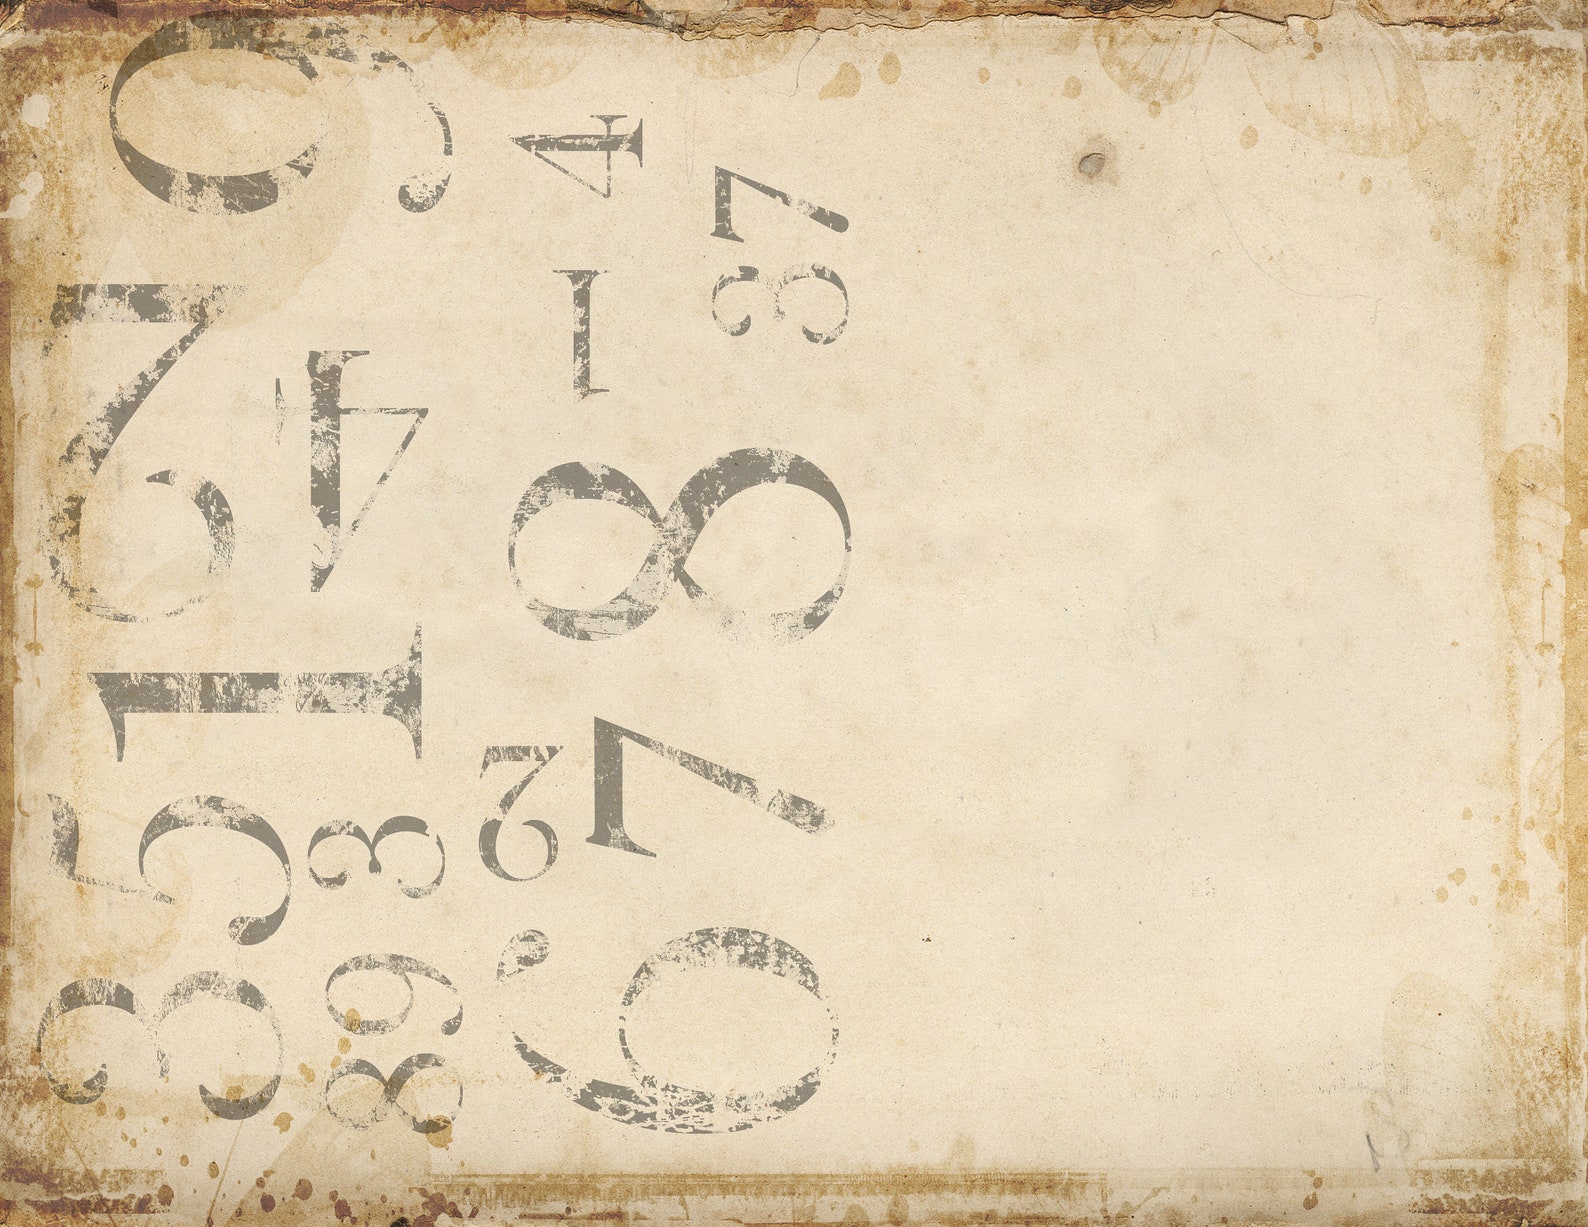 3 5 1 2 9
8 9 3 4
6 2 7 8 1 4
3 7